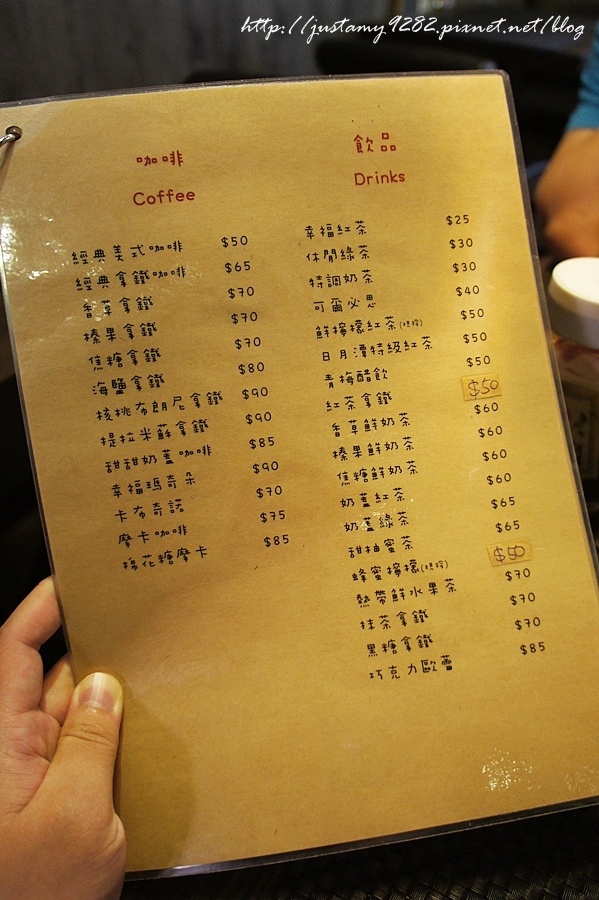 http://justamy9282.pixnet.net/blog
咖啡
Coffee
經典美式咖啡 $50
經典拿鐵咖啡 $65
香草拿鐵 $70
榛果拿鐵 $70
焦糖拿鐵 $70
海鹽拿鐵 $80
核桃布朗尼拿鐵 $90
提拉米蘇拿鐵 $90
甜甜奶蓋咖啡 $85
幸福瑪奇朵 $90
卡布奇諾 $70
摩卡咖啡 $75
棉花糖摩卡 $85
飲品
Drinks
幸福紅茶 $25
休閒綠茶 $30
特調奶茶 $30
可爾必思 $40
鮮檸檬紅茶 $50
日月潭特級紅茶 $50
青梅醋飲 $50
紅茶拿鐵 $50
香草鮮奶茶 $60
榛果鮮奶茶 $60
焦糖鮮奶茶 $60
奶蓋紅茶 $60
奶蓋綠茶 $65
甜柚蜜茶 $65
蜂蜜檸檬 $50
熱帶鮮水果茶 $70
抹茶拿鐵 $70
黑糖拿鐵 $70
巧克力歐蕾 $85